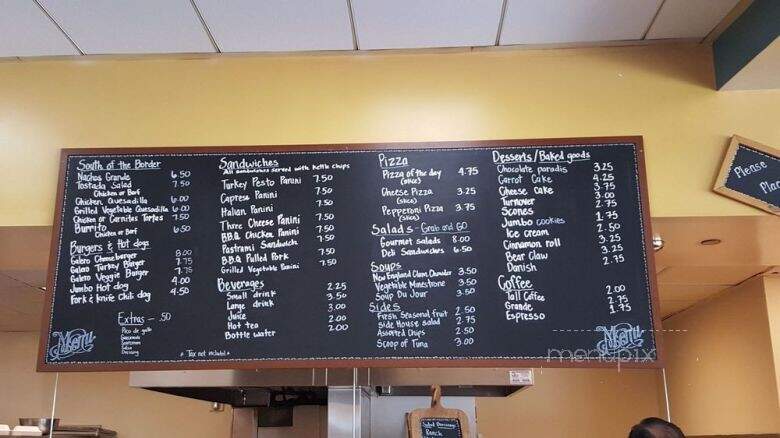 South of the Border
Nachos Grande 6.50
Tostada Salad 7.50
Chicken or Beef
Chicken Quesadilla 6.00
Grilled Vegetable Quesadilla 6.00
Chicken or Carnitas Tortas 7.50
Burrito 6.50
Chicken or Beef
Burgers & Hot dogs
Galeto Cheeseburger 8.00
Galeto Turkey Burger 7.75
Galeto Veggie Burger 7.75
Jumbo Hot dog 4.00
Pork & Knife Chili dog 4.50
Extras - .50
Pico de gallo
Guacamole
Sourcream
Salsa
Dressing
Menu
Sandwiches
All sandwiches served with kettle chips
Turkey Pesto Panini 7.50
Caprese Panini 7.50
Italian Panini 7.50
Three Cheese Panini 7.50
B.B.Q. Chicken Panini 7.50
Pastrami Sandwich 7.50
B.B.Q Pulled Pork 7.50
Grilled Vegetable Panini 7.50
Beverages
Small drink 2.25
Large drink 3.50
Juice 3.00
Hot tea 2.00
Bottle water 2.00
* Tax not included *
Pizza
Pizza of the day 4.75
(slice)
Cheese Pizza 3.25
(slice)
Pepperoni Pizza 3.75
(slice)
Salads - Grab and GO
Gourmet salads 8.00
Deli Sandwiches 6.50
Soups
New England Clam Chowder 3.50
Vegetable Minestrone 3.50
Soup Du Jour 3.50
Sides
Fresh Seasonal fruit 2.50
Side House salad 2.75
Assorted Chips 2.50
Scoop of Tuna 3.00
Desserts/Baked goods
Chocolate paradis 3.25
Carrot Cake 4.25
Cheese cake 3.75
Turnover 3.00
Scones 2.75
Jumbo cookies 1.75
Ice cream 2.50
Cinnamon roll 3.25
Bear Claw 3.25
Danish 2.75
Coffee
Tall Coffee 2.00
Grande 2.75
Espresso 1.75
Menu
menupix
Please
Plac
Salad Dressings
Ranch